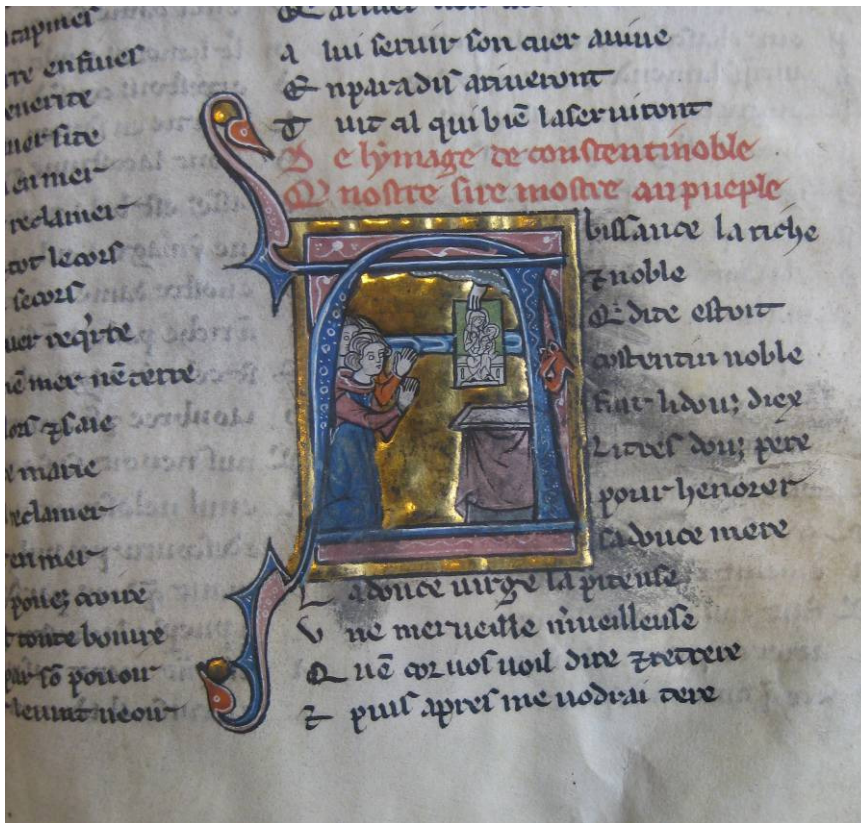 tapiner
rre en siues
uenerite
ner site
en mer
reclamer
tot le cors
secors
uer req'rte
nē mer nē terre
lors ⁊ saie
marie
reclamer
en mer
pouez croire
toute boiure
par sō pouoir
leuint ueoir
a lui seruir son cuer auiue
E nparadis ariueront
T uit cil qui biē la seruiront
D e lymage de constentinoble
Q nostre sire mostre au pueple
bissance la riche
⁊ noble
Q dite estoit
costentin noble
Fait li douz diex
Li tres douz pere
pour henorer
sa douce mere
L a douce uirge la piteuse
V ne merueille m'ueilleuse
Q uē cor uos uoil dire ⁊ retrere
⁊ puis apres me uodrai tere